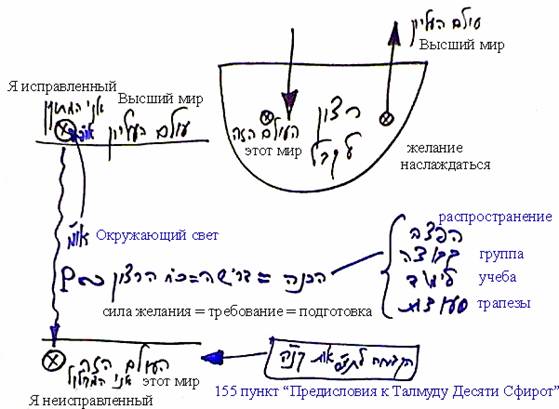 עולם העליון
Высший мир
Я исправленный
Высший мир
עולם העליון
רצון
לקבל
העולם הזה
этот мир
желание
наслаждаться
או"מ
Окружающий свет
распространение
הפצה
קבוצה
группа
לימוד
учеба
סעודות
трапезы
הכנה = דרישה = כח הרצון
сила желания = требование = подготовка
העולם הזה
этот мир
Я неисправленный
155 пункт “Предисловия к Талмуду Десяти Сфирот”